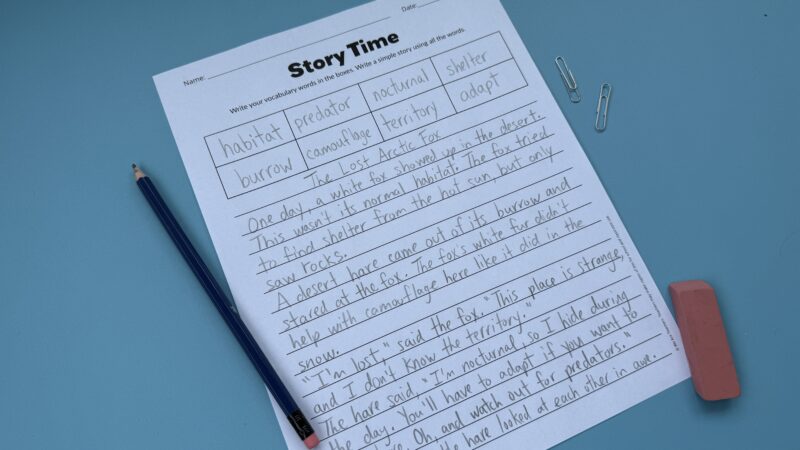 Name:
Date:
Story Time
Write your vocabulary words in the boxes. Write a simple story using all the words.
habitat predator nocturnal shelter
burrow camouflage territory adapt
The Lost Arctic Fox
One day, a white fox showed up in the desert.
This wasn't its normal habitat. The fox tried
to find shelter from the hot sun, but only
saw rocks.
A desert hare came out of its burrow and
stared at the fox. The fox's white fur didn't
help with camouflage here like it did in the
snow.
"I'm lost," said the fox. "This place is strange,
and I don't know the territory."
The hare said, "I'm nocturnal, so I hide during
the day. You'll have to adapt if you want to
Oh, and watch out for predators."
hare looked at each other in awe.